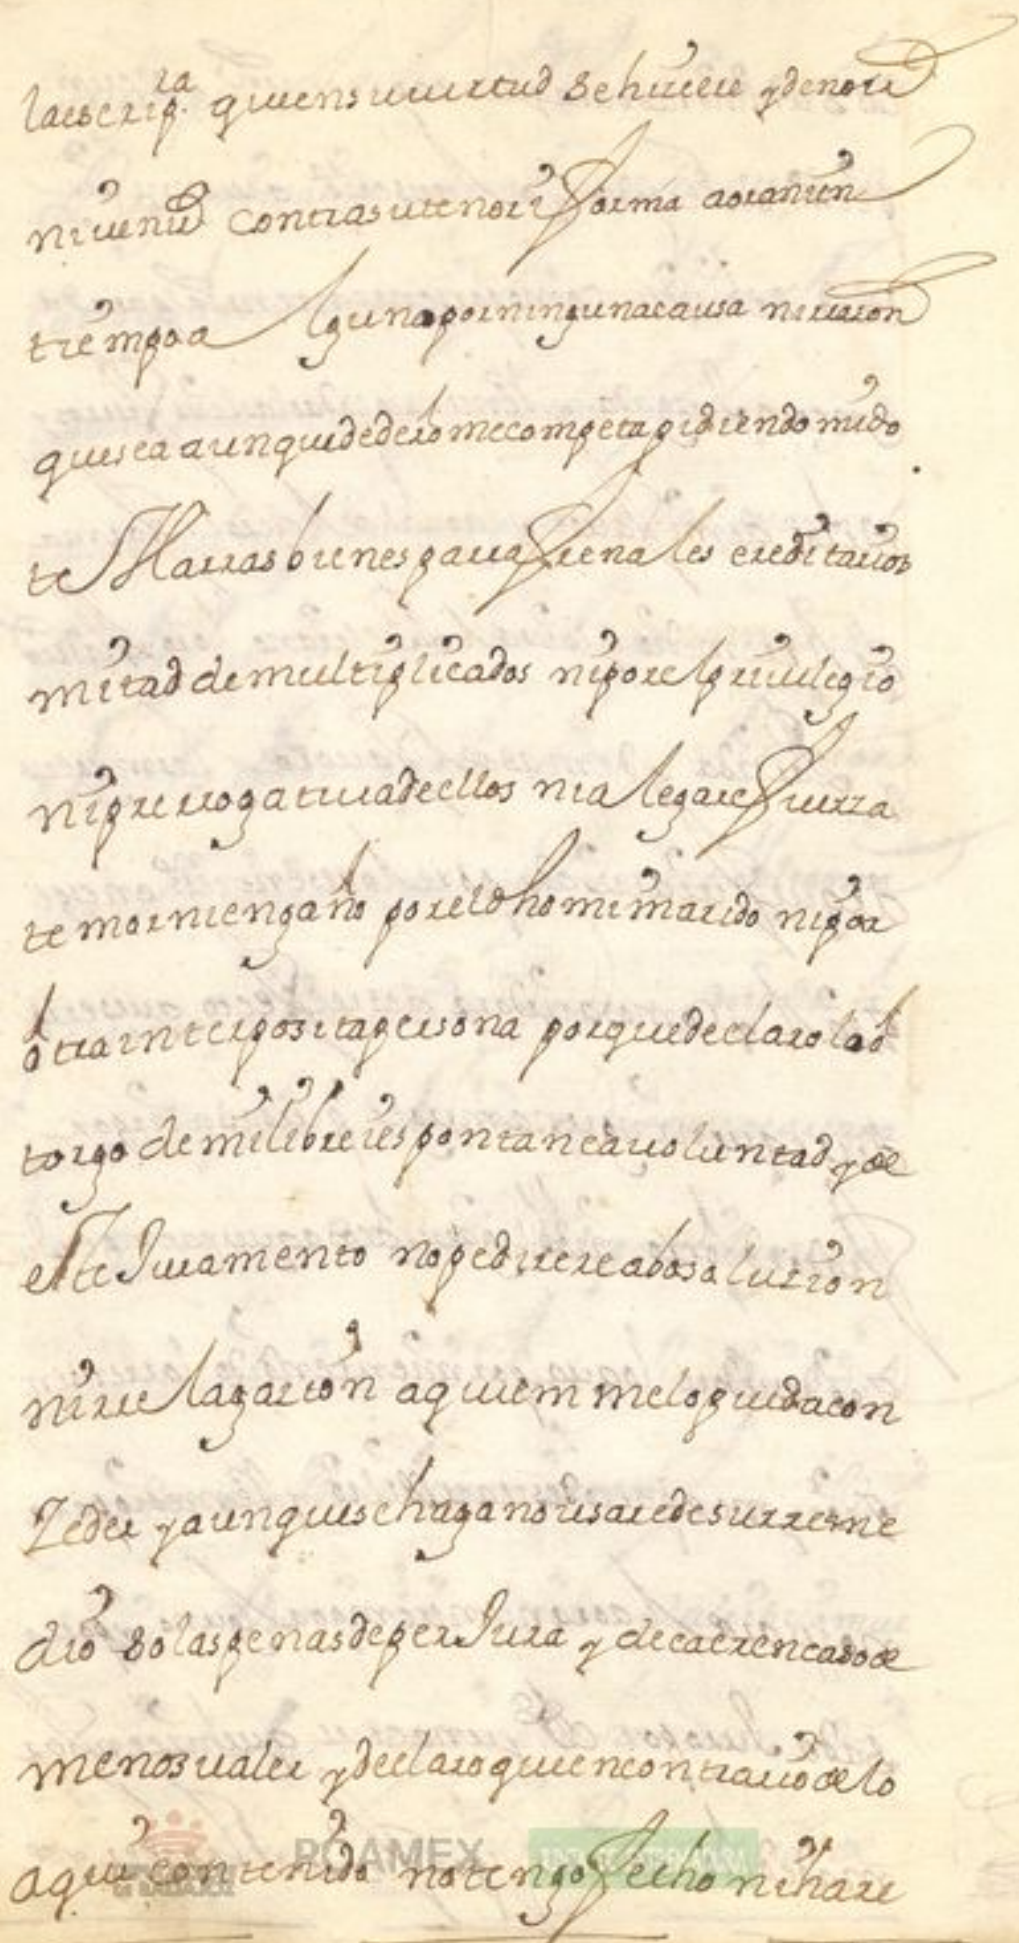 laescrip.ra que en su uirtud se hiciere y de no ir
ni uenir contra su tenor i forma aora ni en
tiempo a lguno por ninguna causa ni raçon
que sea aunque de dro me competa pidiendo mi do
te Harras bienes parafrenales ereditarios
mitad de multiplicados ni por el priuilegio
ni prerrogatiua de ellos ni a legare fuerza
temor ni engaño por el dho mi marido ni por
otra interposita persona porque declaro la o
torgo de mi libre i espontanea uoluntad y de
este Juramento no pedire reabsoluzion
ni relaxazion a quiem me lo pueda con
Zeder y aunque se haga no usare de su rreme
dio so las penas de perJura y de caer en caso de
menos ualer y declaro que en contrario de lo
aqui contenido no tengo fecho ni hare
POAMEX